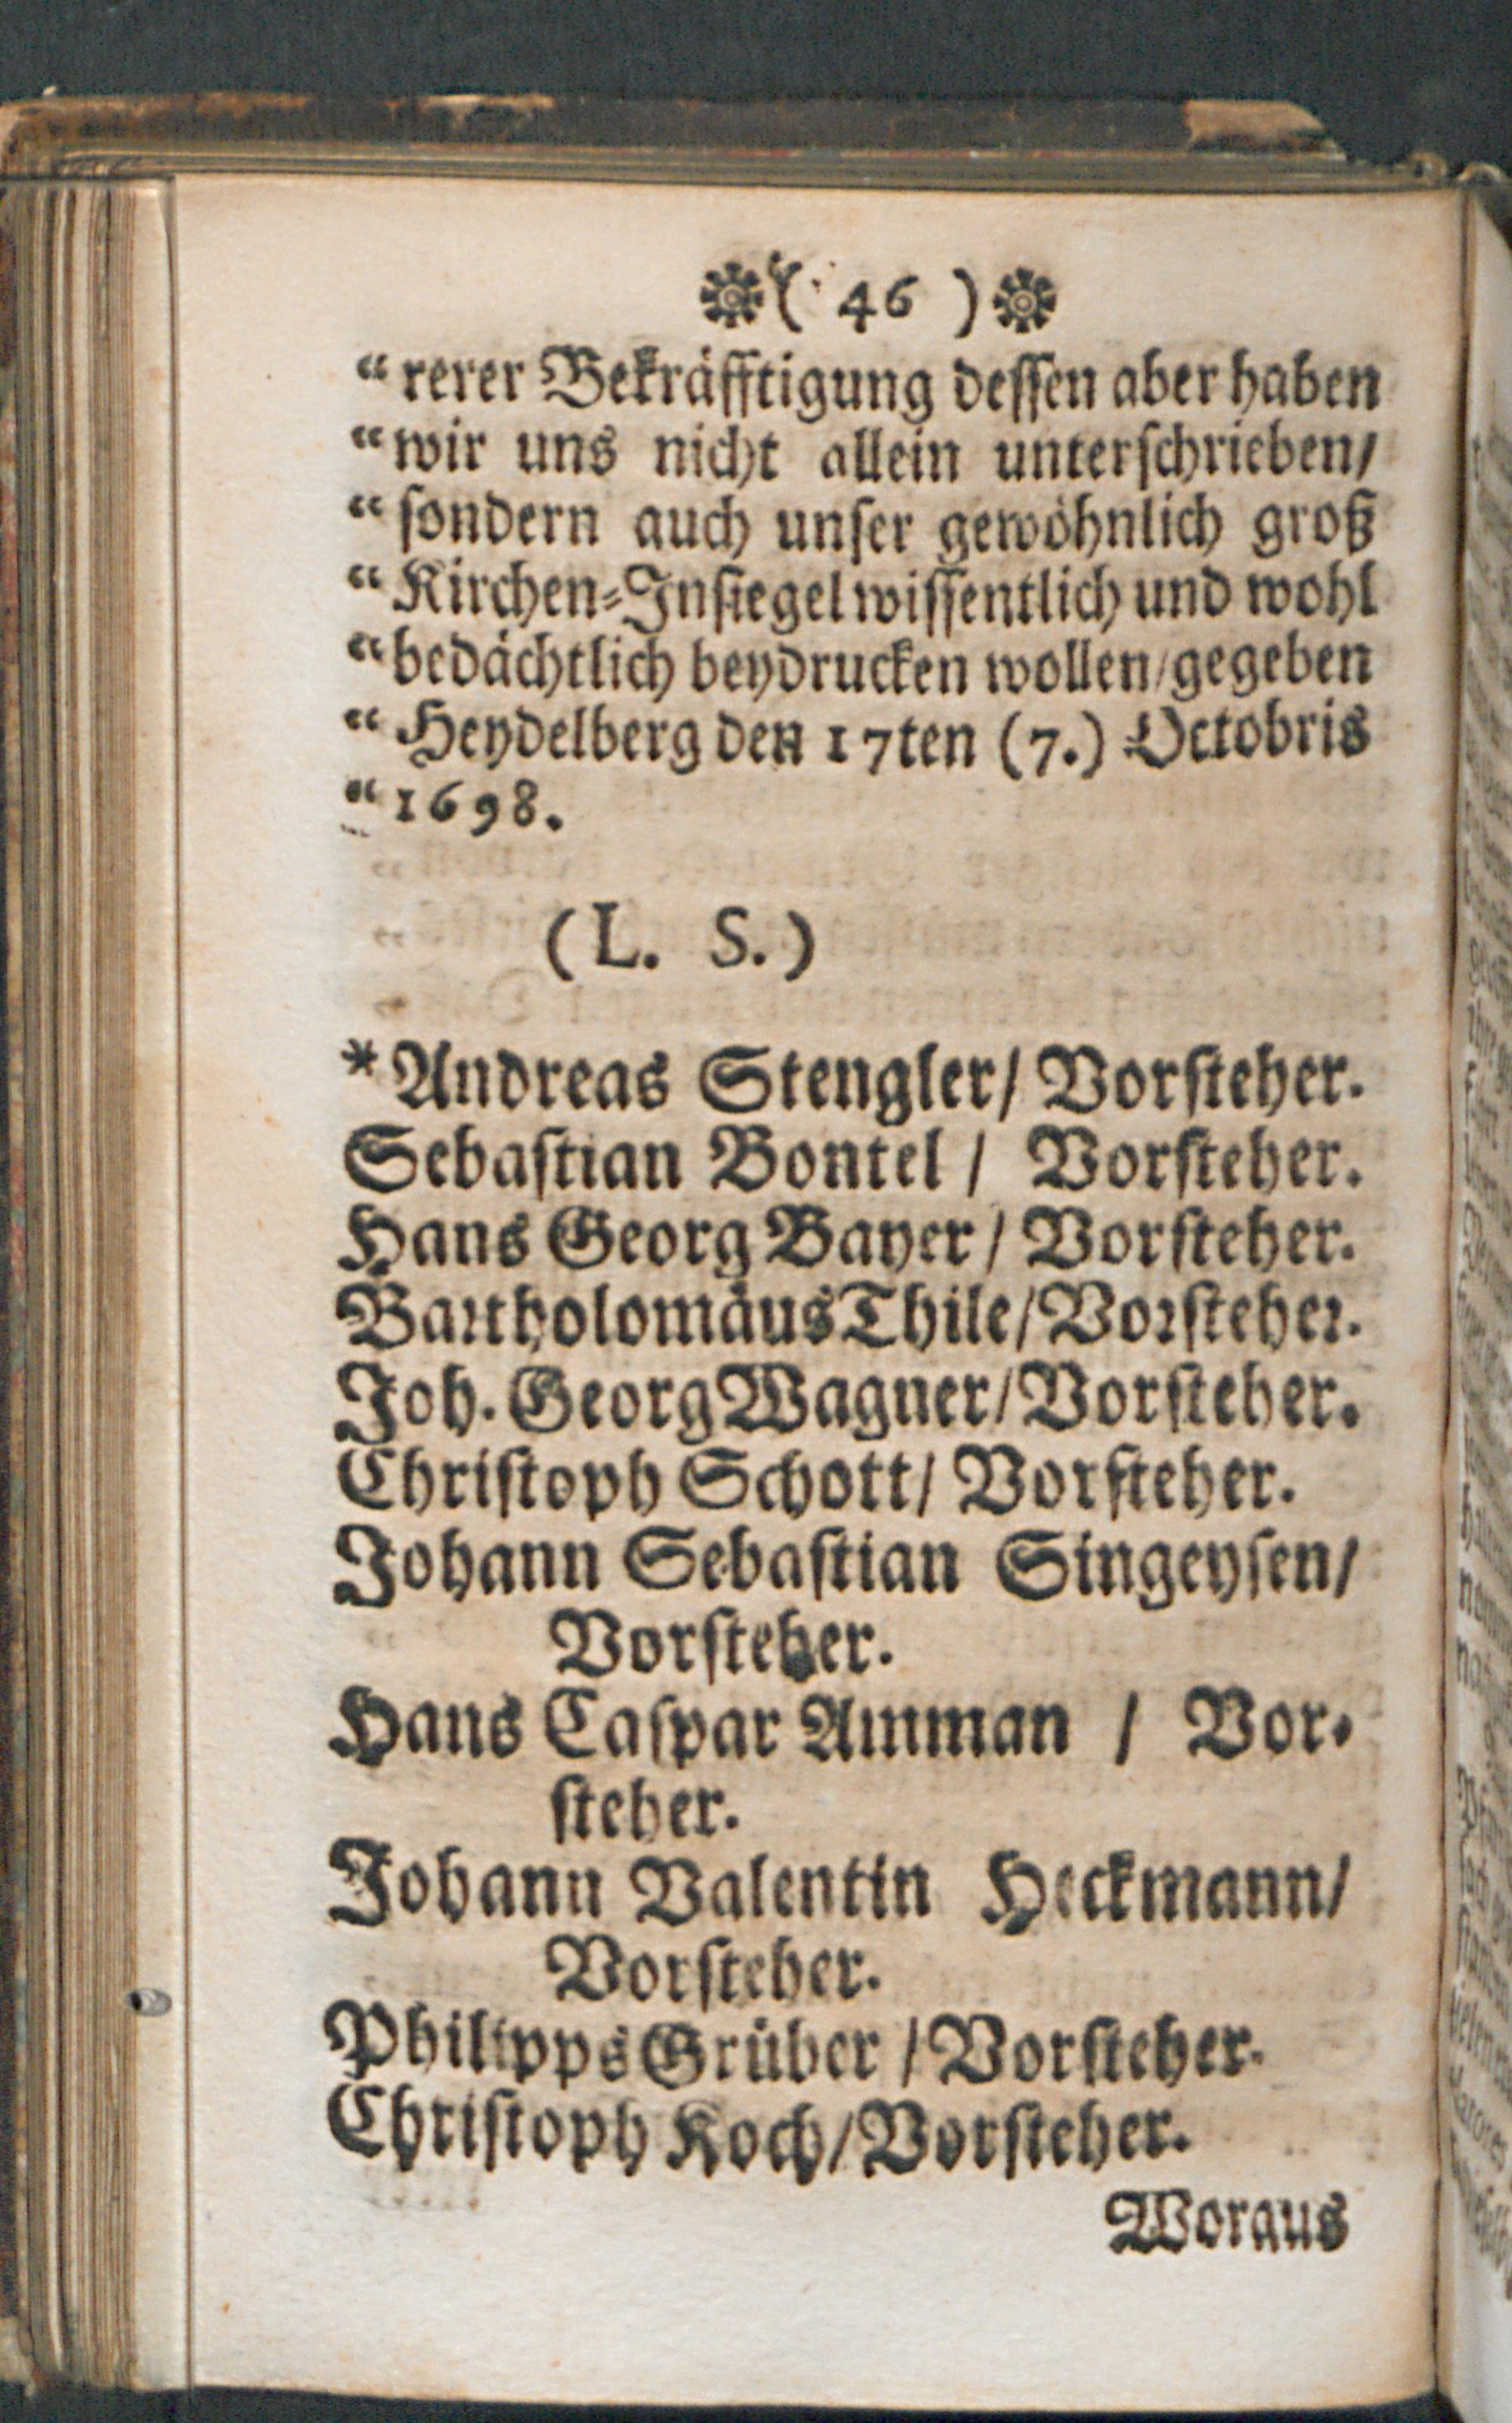 ( 46 )
“rerer Bekräfftigung dessen aber haben
“wir uns nicht allein unterschrieben/
“sondern auch unser gewöhnlich groß
“Kirchen-Insiegel wissentlich und wohl
“bedächtlich beydrucken wollen/gegeben
“Heydelberg den 17ten (7.) Octobris
“1698.
(L. S.)
*Andreas Stengler/ Vorsteher.
Sebastian Bontel / Vorsteher.
Hans Georg Bayer/ Vorsteher.
Bartholomäus Thile/Vorsteher.
Joh. Georg Wagner/Vorsteher.
Christoph Schott/ Vorsteher.
Johann Sebastian Singeysen/
Vorsteher.
Hans Caspar Amman / Vor-
steher.
Johann Valentin Heckmann/
Vorsteher.
Philipps Grüber / Vorsteher.
Christoph Koch/Vorsteher.
Woraus